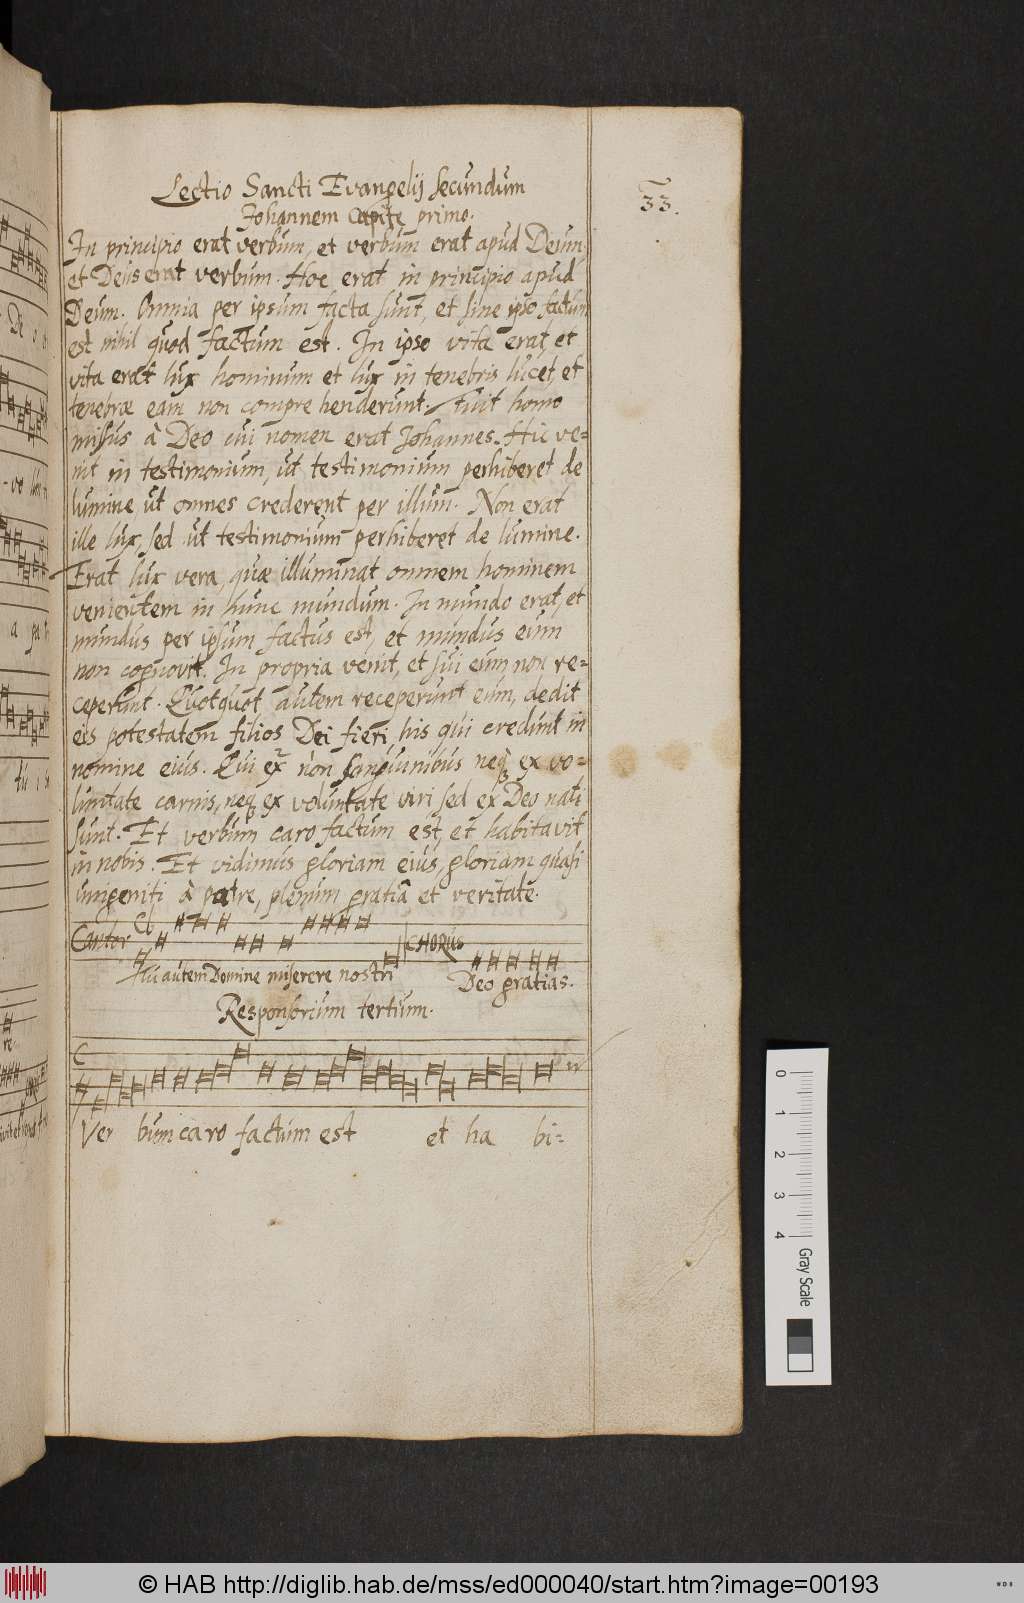 Lectio Sancti Evangelij secundum
33.
Johannem Capite primo.
In principio erat verbum, et verbum erat apud Deum,
et Deus erat verbum. Hoc erat in principio apud
Deum. Omnia per ipsum facta sunt, et sine ipso factum
est nihil quod factum est. In ipso vita erat, et
vita erat lux hominum et lux in tenebris lucet, et
tenebræ eam non comprehenderunt. Fuit homo
missus à Deo cui nomen erat Johannes. Hic ve=
nit in testimonium, ut testimonium perhiberet de
lumine ut omnes crederent per illum. Non erat
ille lux, sed ut testimonium perhiberet de lumine.
Erat lux vera, quæ illuminat omnem hominem
venientem in hunc mundum. In mundo erat, et
mundus per ipsum factus est, et mundus eum
non cognovit. In propria venit, et sui eum non re=
ceperunt. Quotquot autem receperunt eum, dedit
eis potestatem filios Dei fieri, his qui credunt in
nomine eius. Qui ex non sanguinibus neqȝ ex vo=
luntate carnis, neqȝ ex voluntate viri sed ex Deo nati
sunt. Et verbum caro factum est, et habitavit
in nobis. Et vidimus gloriam eius, gloriam quasi
unigeniti à patre, plenum gratiâ et veritate.
Cantor CHORUS
Tu autem Domine miserere nostri Deo gratias.
Responsorium tertium.
Ver bum caro factum est et ha bi=
0 1 2 3 4 Gray Scale
© HAB http://diglib.hab.de/mss/ed000040/start.htm?image=00193